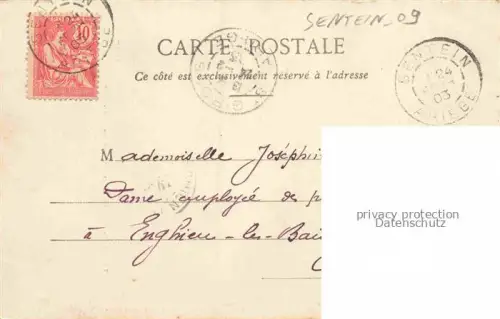 SENTEIN_09
CARTE POSTALE
Ce côté est exclusivement réservé à l'adresse
10
SENTEIN
24
03
ARIEGE
Mademoiselle Joséphi
Dame employée de p
à Enghien-les-Bai
privacy protection
Datenschutz